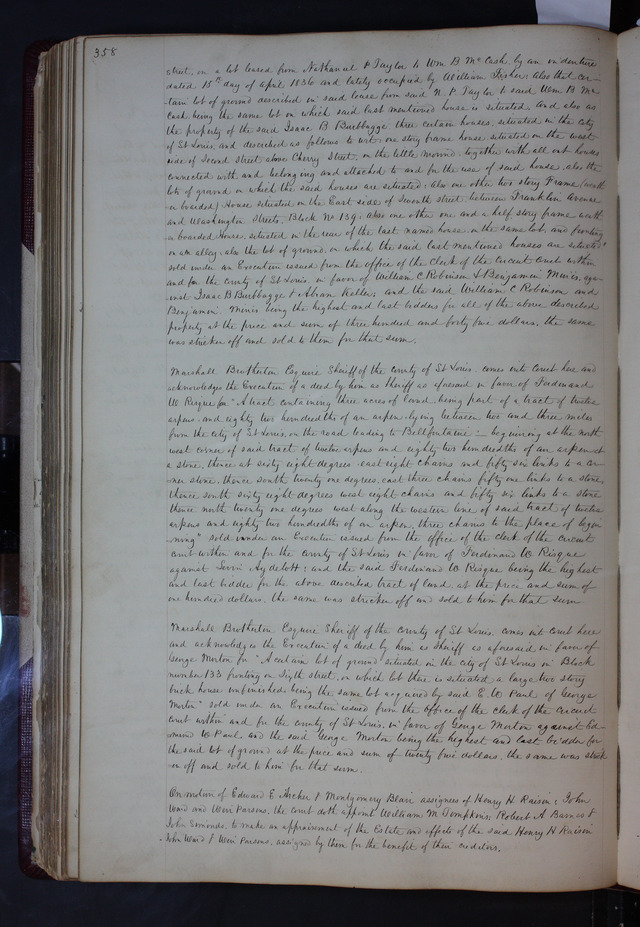 358
street, on a lot leased from Nathaniel P Taylor to Wm B McCash by an indenture
dated 15th day of April 1836 and lately occupied by William Fisher: also that cer-
tain lot of ground described in said lease from said N. P. Taylor to said Wm B Mc
Cash being the same lot on which said last mentioned house is situated and also as
the property of the said Isaac B Burbbayge three certain houses, situated in the city
of St Louis, and described as follows to wit: one story frame house situated on the west
side of Second Street above Cherry Street, on the little mound, together with all out houses
connected with and belonging and attached to and for the use of said house, also the
lots of ground on which the said houses are situated: also one other two story Frame (weath
er boarded) House situated on the East side of Seventh street between Franklin Avenue
and Washington streets, Block No 139: also one other one and a half story frame weath
er boarded House, situated in the rear of the last named house, on the same lot, and fronting
on an alley: also the lot of ground, on which the said last mentioned houses are situated"
sold under an Execution issued from the office of the Clerk of the Circuit Court within
and for the County of St Louis, in favor of William C Robinson & Benjamin aga-
inst Isaac B Burbbayge & Abram Keller, and the said William C Robinson and
Benjamin being the highest and last bidders for all of the above described
property at the price and sum of three hundred and forty five dollars, the same
was stricken off and sold to them for that sum.
Marshall Brotherton Esquire Sheriff of the county of St Louis, comes into Court here and
acknowledges the Execution of a deed by him as sheriff as aforesaid in favor of Ferdinand
W Risque for "A tract containing three acres of land, being part of a tract of twelve
arpens and eighty two hundredths of an arpen, lying between two and three miles
from the city of St Louis, on the road leading to Bellfontaine:- beginning at the north
west corner of said tract of twelve arpens and eighty two hundredths of an arpen at
a stone, thence at sixty eight degrees east eight chains and fifty six links to a cor
ner stone, thence south twenty one degrees, east three chains fifty one links to a stone,
thence south sixty eight degrees west eight chains and fifty six links to a stone
thence north twenty one degrees west along the western line of said tract of twelve
arpens and eighty two hundredths of an arpen, three chains to the place of begin
ning" sold under an Execution issued from the office of the clerk of the circuit
court within and for the county of St Louis in favor of Ferdinand W Risque
against Levin Aydelott: and the said Ferdinand W Risque being the highest
and last bidder for the above described tract of land, at the price and sum of
one hundred dollars, the same was stricken off and sold to him for that sum
Marshall Brotherton Esquire Sheriff of the County of St Louis, comes into court here
and acknowledges the Execution of a deed by him as sheriff as aforesaid in favor of
George Morton for "A certain lot of ground situated in the city of St Louis in Block
number 133 fronting on Sixth street, on which lot there is situated a large two story
brick house unfinished, being the same lot acquired by said E. W Paul of George
Morton" sold under an Execution issued from the office of the Clerk of the Circuit
court within and for the county of St Louis, in favor of George Morton against Ed-
mund W Paul, and the said George Morton being the highest and last bidder for
the said lot of ground at the price and sum of twenty five dollars, the same was strick
en off and sold to him for that sum.
On motion of Edward E Archer & Montgomery Blair assignees of Henry H Raisin; John
Ward and Parsons, the court doth appoint William M Tompkins, Robert A Barnes &
John Simonds, to make an appraisement of the Estate and effects of the said Henry H Raisin
John Ward & Parsons, assigned by them for the benefit of their creditors.